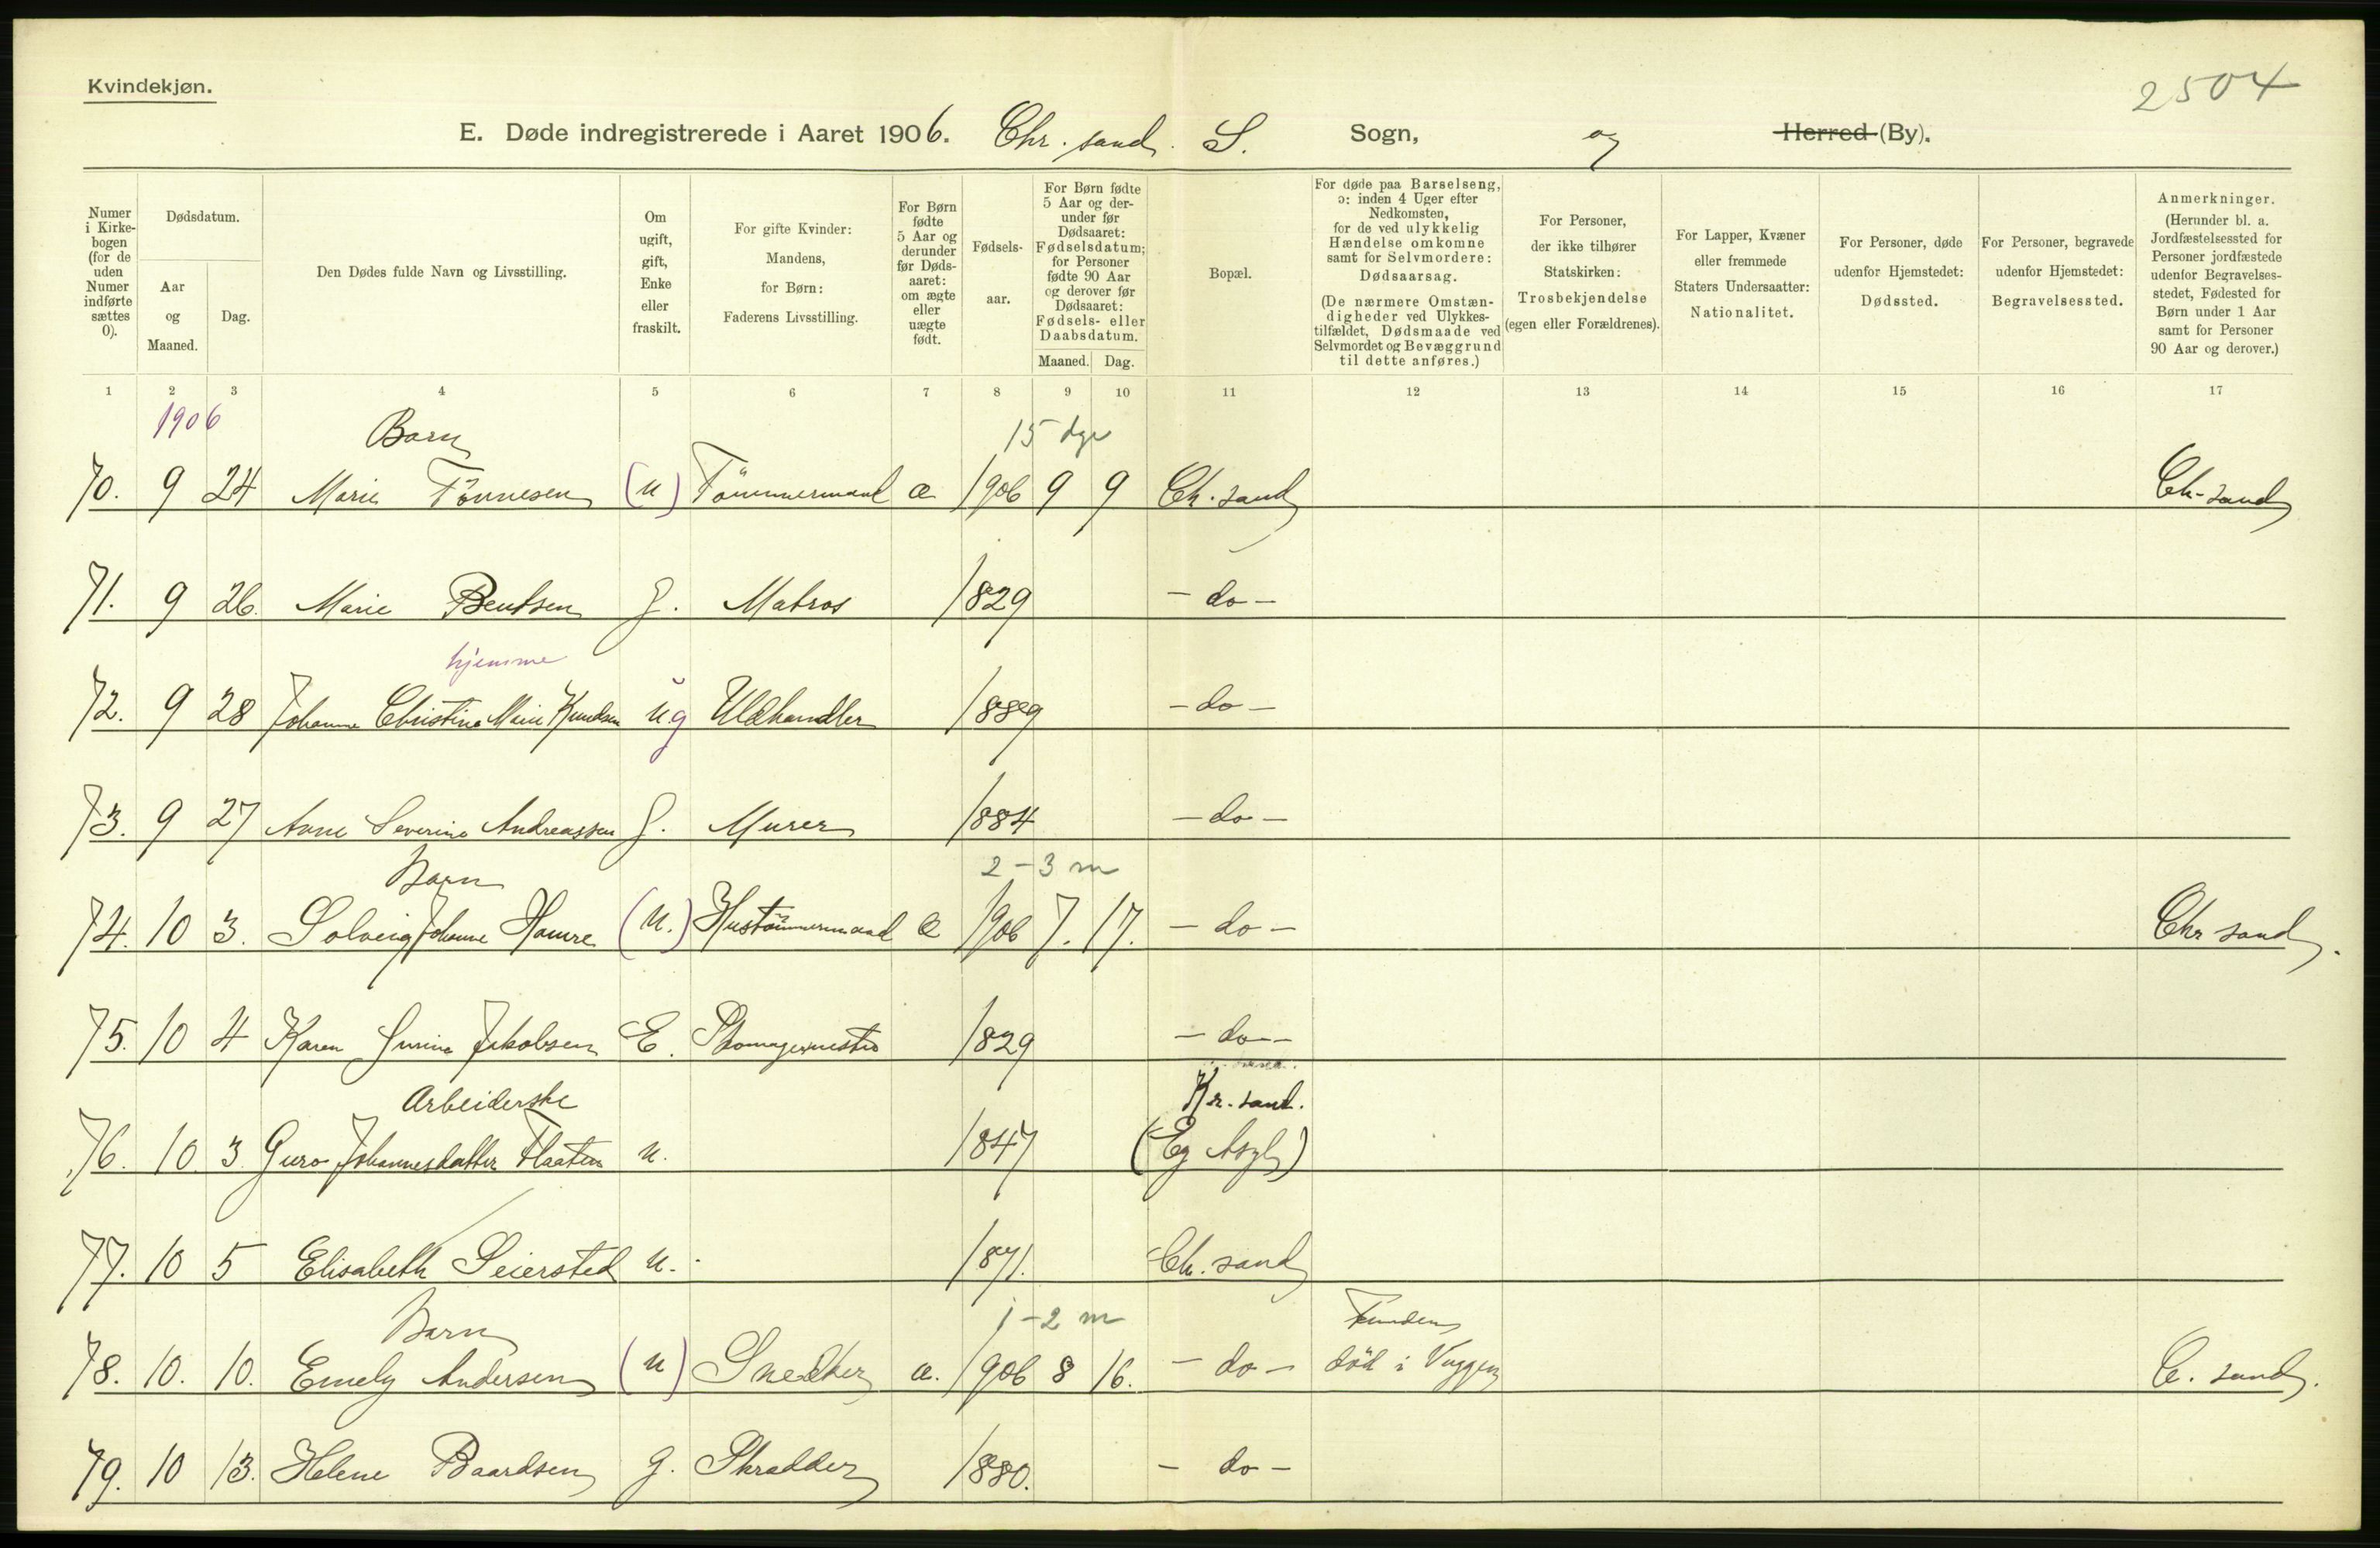 Kvindekjøn.
2504
E. Døde indregistrerede i Aaret 1906. Chr. sand S. Sogn, og Herred (By).
Numer i Kirkebogen (for de uden Numer indførte sættes 0).
Dødsdatum.
Aar og Maaned.
Dag.
Den Dødes fulde Navn og Livsstilling.
Om ugift, gift, Enke eller fraskilt.
For gifte Kvinder: Mandens, for Børn: Faderens Livsstilling.
For Børn fødte 5 Aar og derunder før Dødsaaret: om ægte eller uægte født.
Fødselsaar.
For Børn fødte 5 Aar og derunder før Dødsaaret: Fødselsdatum; for Personer fødte 90 Aar og derover før Dødsaaret: Fødsels- eller Daabsdatum.
Maaned. Dag.
Bopæl.
For døde paa Barselseng, ɔ: inden 4 Uger efter Nedkomsten, for de ved ulykkelig Hændelse omkomne samt for Selvmordere: Dødsaarsag.
(De nærmere Omstændigheder ved Ulykkestilfældet, Dødsmaade ved Selvmordet og Bevæggrund til dette anføres.)
For Personer, der ikke tilhører Statskirken: Trosbekjendelse (egen eller Forældrenes).
For Lapper, Kvæner eller fremmede Staters Undersaatter: Nationalitet.
For Personer, døde udenfor Hjemstedet: Dødssted.
For Personer, begravede udenfor Hjemstedet: Begravelsessted.
Anmerkninger. (Herunder bl. a. Jordfæstelsessted for Personer jordfæstede udenfor Begravelsesstedet, Fødested for Børn under 1 Aar samt for Personer 90 Aar og derover.)
1 2 3 4 5 6 7 8 9 10 11 12 13 14 15 16 17
1906 Barn 15 dge
70. 9 24 Marie Tönnesen (u) Tömmermand æ 1906 9 9 Ch. sand Ch-sand
71. 9 26. Marie Bentsen g. Matros 1829 - do -
hjemme
72. 9 28 Johanne Christine Marie Knudsen ug Uldhandler 1889 - do -
73. 9 27 Anne Severine Andreassen g. Murer 1884 - do -
Barn 2-3 m
74. 10 3. Solveig Johanne Hamre (u.) Hustömmermand æ 1906 7. 17. - do - Chr sand.
75. 10 4 Karen Jakobsen E. Skomagermester 1829 - do -
Arbeiderske Kr. sand.
76. 10. 3 Guro Johannesdatter Flaaten u. 1847 (Eg Asyl)
77. 10 5 Elisabeth Seiersted u. 1871. Ch. sand
Barn 1-2 m Funden
78. 10. 10. Emely Andersen (u) Snedker æ. 1906 8 16. - do - död i Vuggen C. sand.
79. 10 13. Helene Baardsen g. Skrædder 1880. - do -